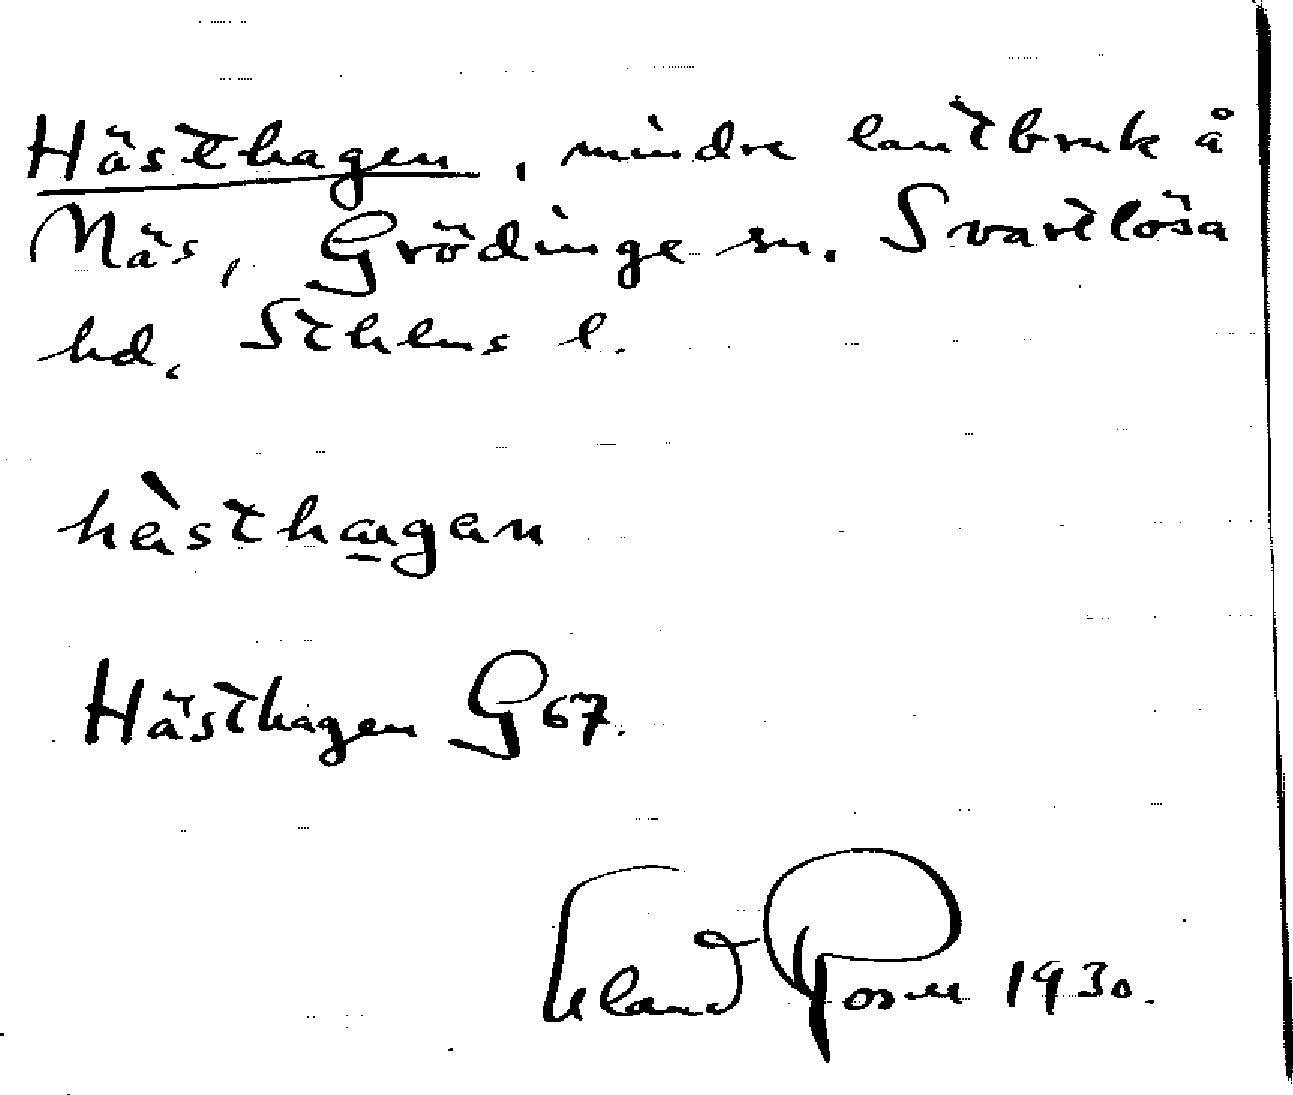 Hästhagen, mindre lantbruk å
Näs, Grödinge sn. Svartlösa
hd. Sthlms l.
hàsthagan
Hästhagen G 67.
Erland Rosell 1930.